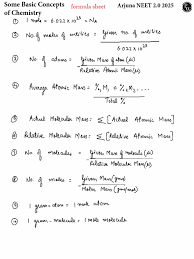 Some Basic Concepts of Chemistry
formula sheet
Arjuna NEET 2.0 2025
① 1 mole = 6.022 × 10²³ = NA
② No of moles of entities = Given no of entities / 6.022 × 10²³
③ No of atoms = Given Mass of atom (u) / Relative Atomic Mass (u)
④ Average Atomic Mass = %₁ M₁ + %₂ X₂ ... / Total %
⑤ Actual Molecular Mass: Σ [Actual Atomic Mass]
⑥ Relative Molecular Mass: Σ [Relative Atomic Mass]
⑦ No of molecules = Given Mass of molecule (u) / Relative Molecular Mass (u)
⑧ No of moles = Given Mass (gram) / Molar Mass (gram/mol)
⑨ 1 gram-atom = 1 mole atom
⑩ 1 gram-molecule = 1 mole molecule